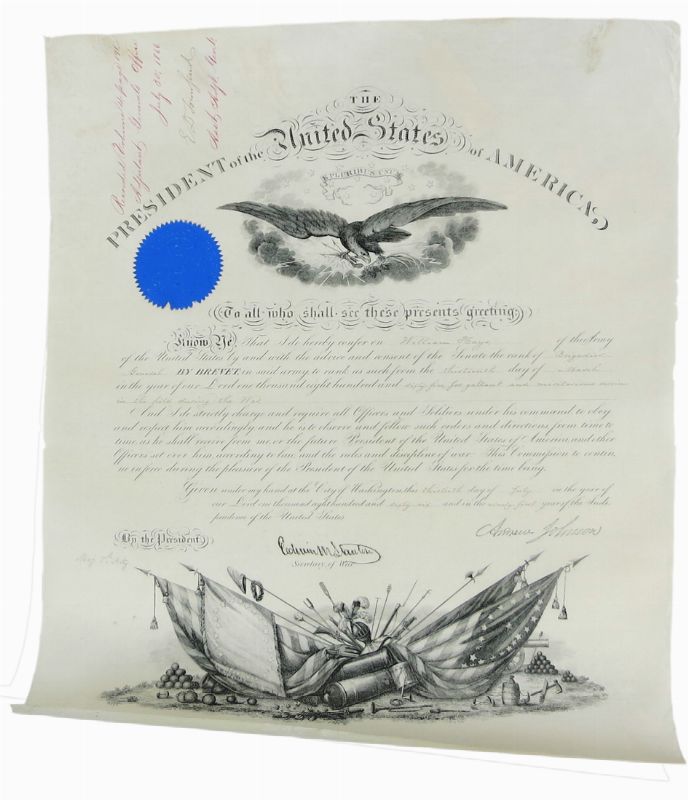 THE
United States
PRESIDENT of the of AMERICA,
E PLURIBUS UNUM
To all who shall see these presents greeting:
Know Ye, That I do hereby confer on William of the Army
of the United States by and with the advice and consent of the Senate the rank of Brigadier
General BY BREVET in said army to rank as such from the thirteenth day of March
in the year of our Lord one thousand eight hundred and sixty five for gallant and meritorious services
in the field during the War
And I do strictly charge and require all Officers and Soldiers under his command to obey
and respect him accordingly and he is to observe and follow such orders and directions from time to
time as he shall receive from me or the future President of the United States of America and other
Officers set over him according to law and the rules and discipline of war. This Commission to contin
ue in force during the pleasure of the President of the United States for the time being.
Given under my hand at the City of Washington this thirtieth day of July in the year of
our Lord one thousand eight hundred and sixty six and in the ninety first year of the Inde
pendence of the United States
By the President,
Andrew Johnson
Edwin M Stanton
Secretary of War
July 30, 1866